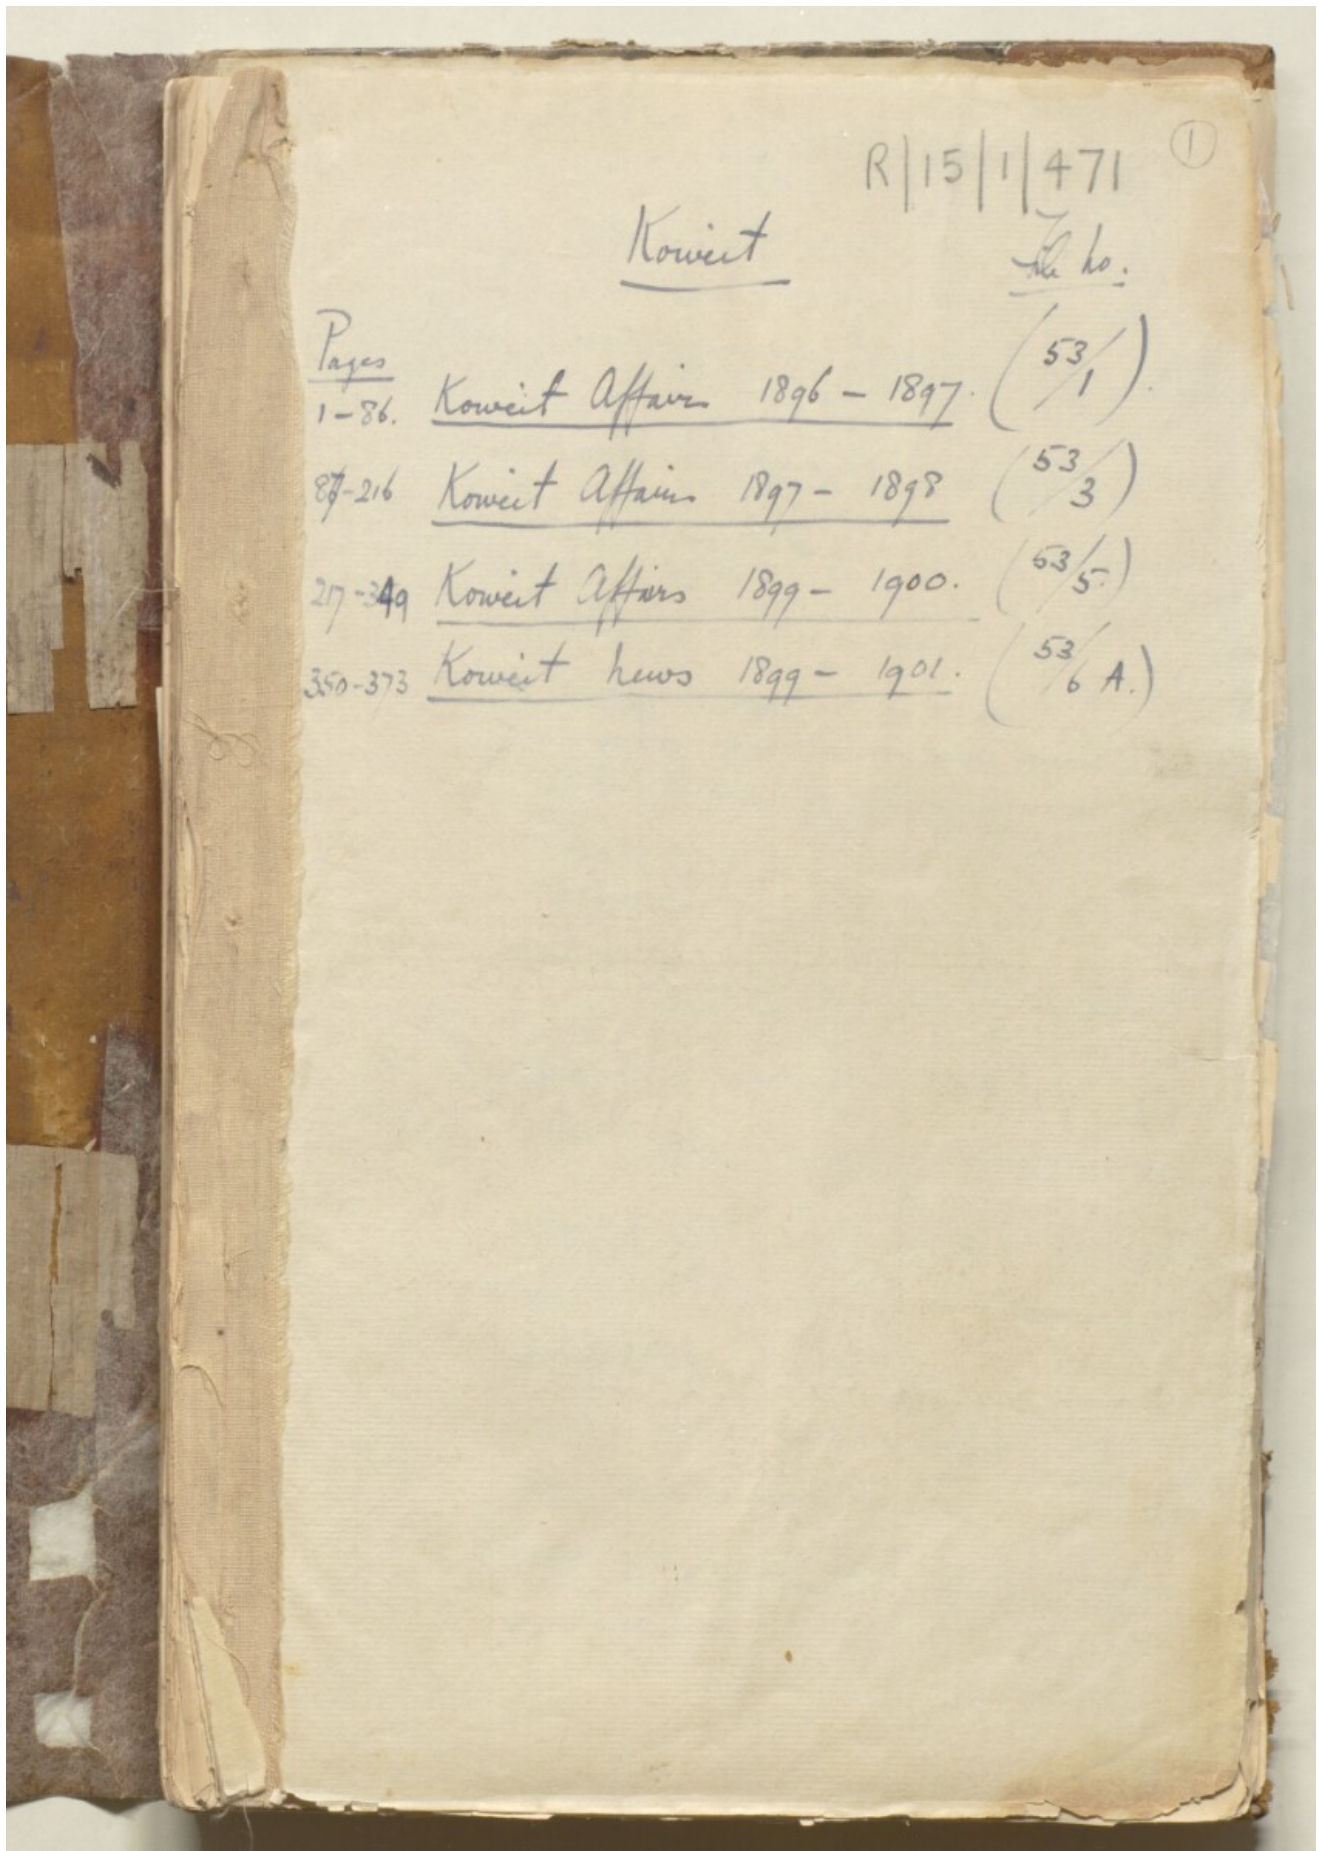 1
R/15/1/471
Koweit
File No.
Pages
1-86. Koweit Affairs 1896 - 1897. (53/1).
87-216 Koweit Affairs 1897 - 1898 (53/3)
217-349 Koweit Affairs 1899 - 1900. (53/5.)
350-373 Koweit News 1899 - 1901. (53/6 A.)